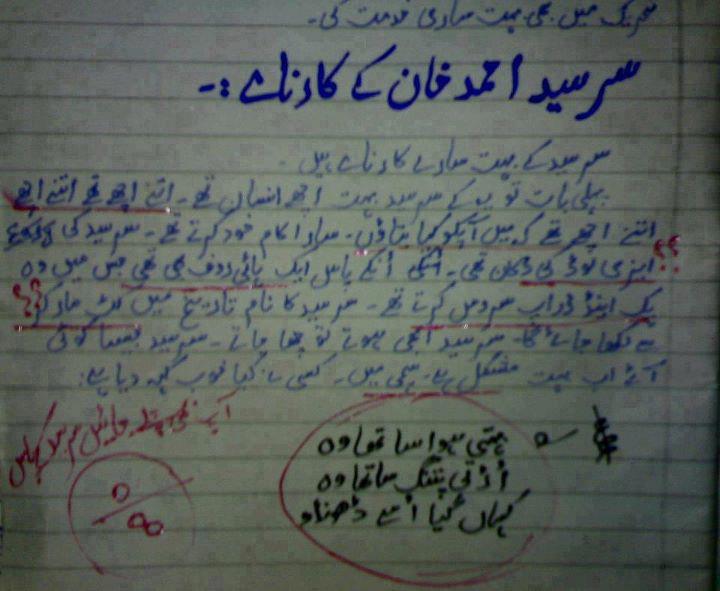 تحریک میں بھی بہت ساری خدمت کی۔
سر سید احمد خان کے کارنامے :-
سر سید کے بہت سارے کارنامے ہیں۔
پہلی بات تو یہ کے سر سید بہت اچھے انسان تھے۔ اتنے اچھے تھے اتنے اچھے
اتنے اچھے تھے کہ میں آپکو کیا بتاؤں۔ سارا کام خود کرتے تھے۔ سر سید کی
ایزی لوڈ کی دکان تھی۔ انکے پاس ایک ہائی روف بھی تھی جس میں وہ ؟؟
پک اینڈ ڈراپ سروس کرتے تھے۔ سر سید کا نام تاریخ میں مار کر ؟؟
سے لکھا جائے گا۔ سر سید ابھی ہوتے تو چھا جاتے۔ سر سید جیسا کوئی
آئے اب بہت مشکل ہے۔ سچی میں۔ کسی نے کیا خوب کہہ دیا ہے:
آپ
بہتی ہوا سا تھا وہ
اڑتی پتنگ سا تھا وہ
کہاں گیا اسے ڈھونڈو
0/00